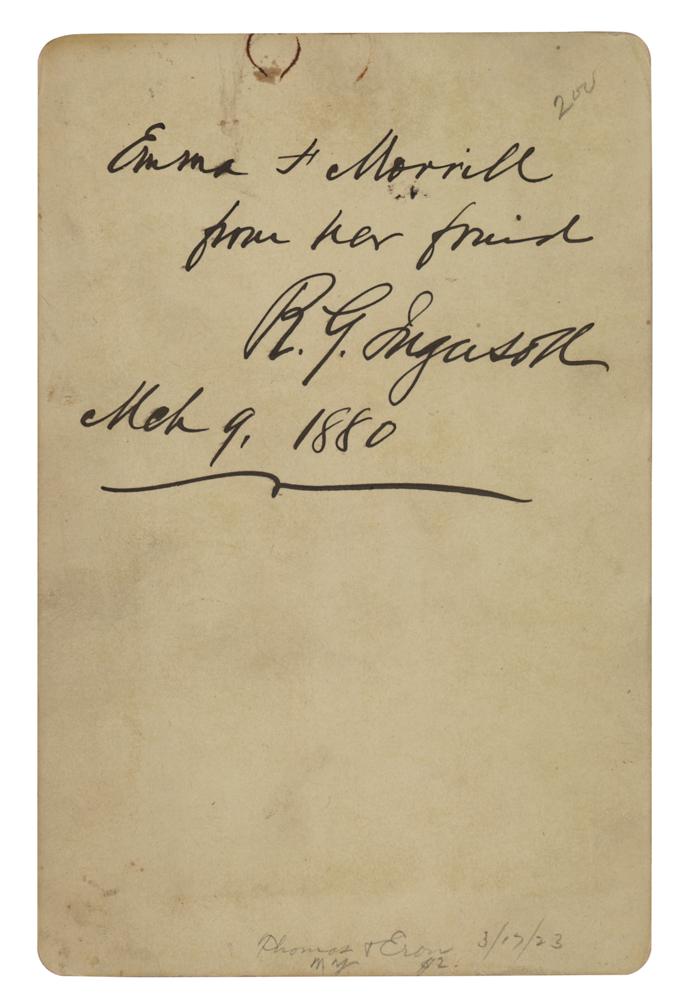 200
Emma F Morrill
from her friend
R. G. Ingersoll
Mch 9, 1880
Thomas & Eron 3/17/23
NY $2.